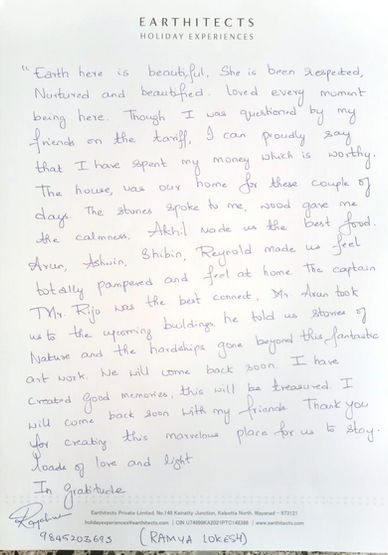 EARTHITECTS
HOLIDAY EXPERIENCES
"Earth here is beautiful, She is been respected,
Nurtured and beautified. loved every moment
being here. Though I was questioned by my
friends on the tariff, I can proudly say
that I have spent my money which is worthy.
The house, was our home for these couple of
days. The stones spoke to me, wood gave me
the calmness. Akhil made us the best food.
Arun, Ashwin, Shibin, Reynold made us feel
totally pampered and feel at home. The captain
Mr. Rijo was the best connect, Mr. Arun took
us to the upcoming buildings he told us stories of
Nature and the hardships gone beyond this fantastic
art work. We will come back soon. I have
created good memories, this will be treasured. I
will come back soon with my friends. Thank you
for creating this marvelous place for us to stay.
loads of love and light
In gratitude
Earthitects Private Limited, No.748 Kainatty Junction, Kalpetta North, Wayanad - 673121
holidayexperiences@earthitects.com | CIN U74999KA2021PTC146386 | www.earthitects.com
9845203693 (RAMYA LOKESH)